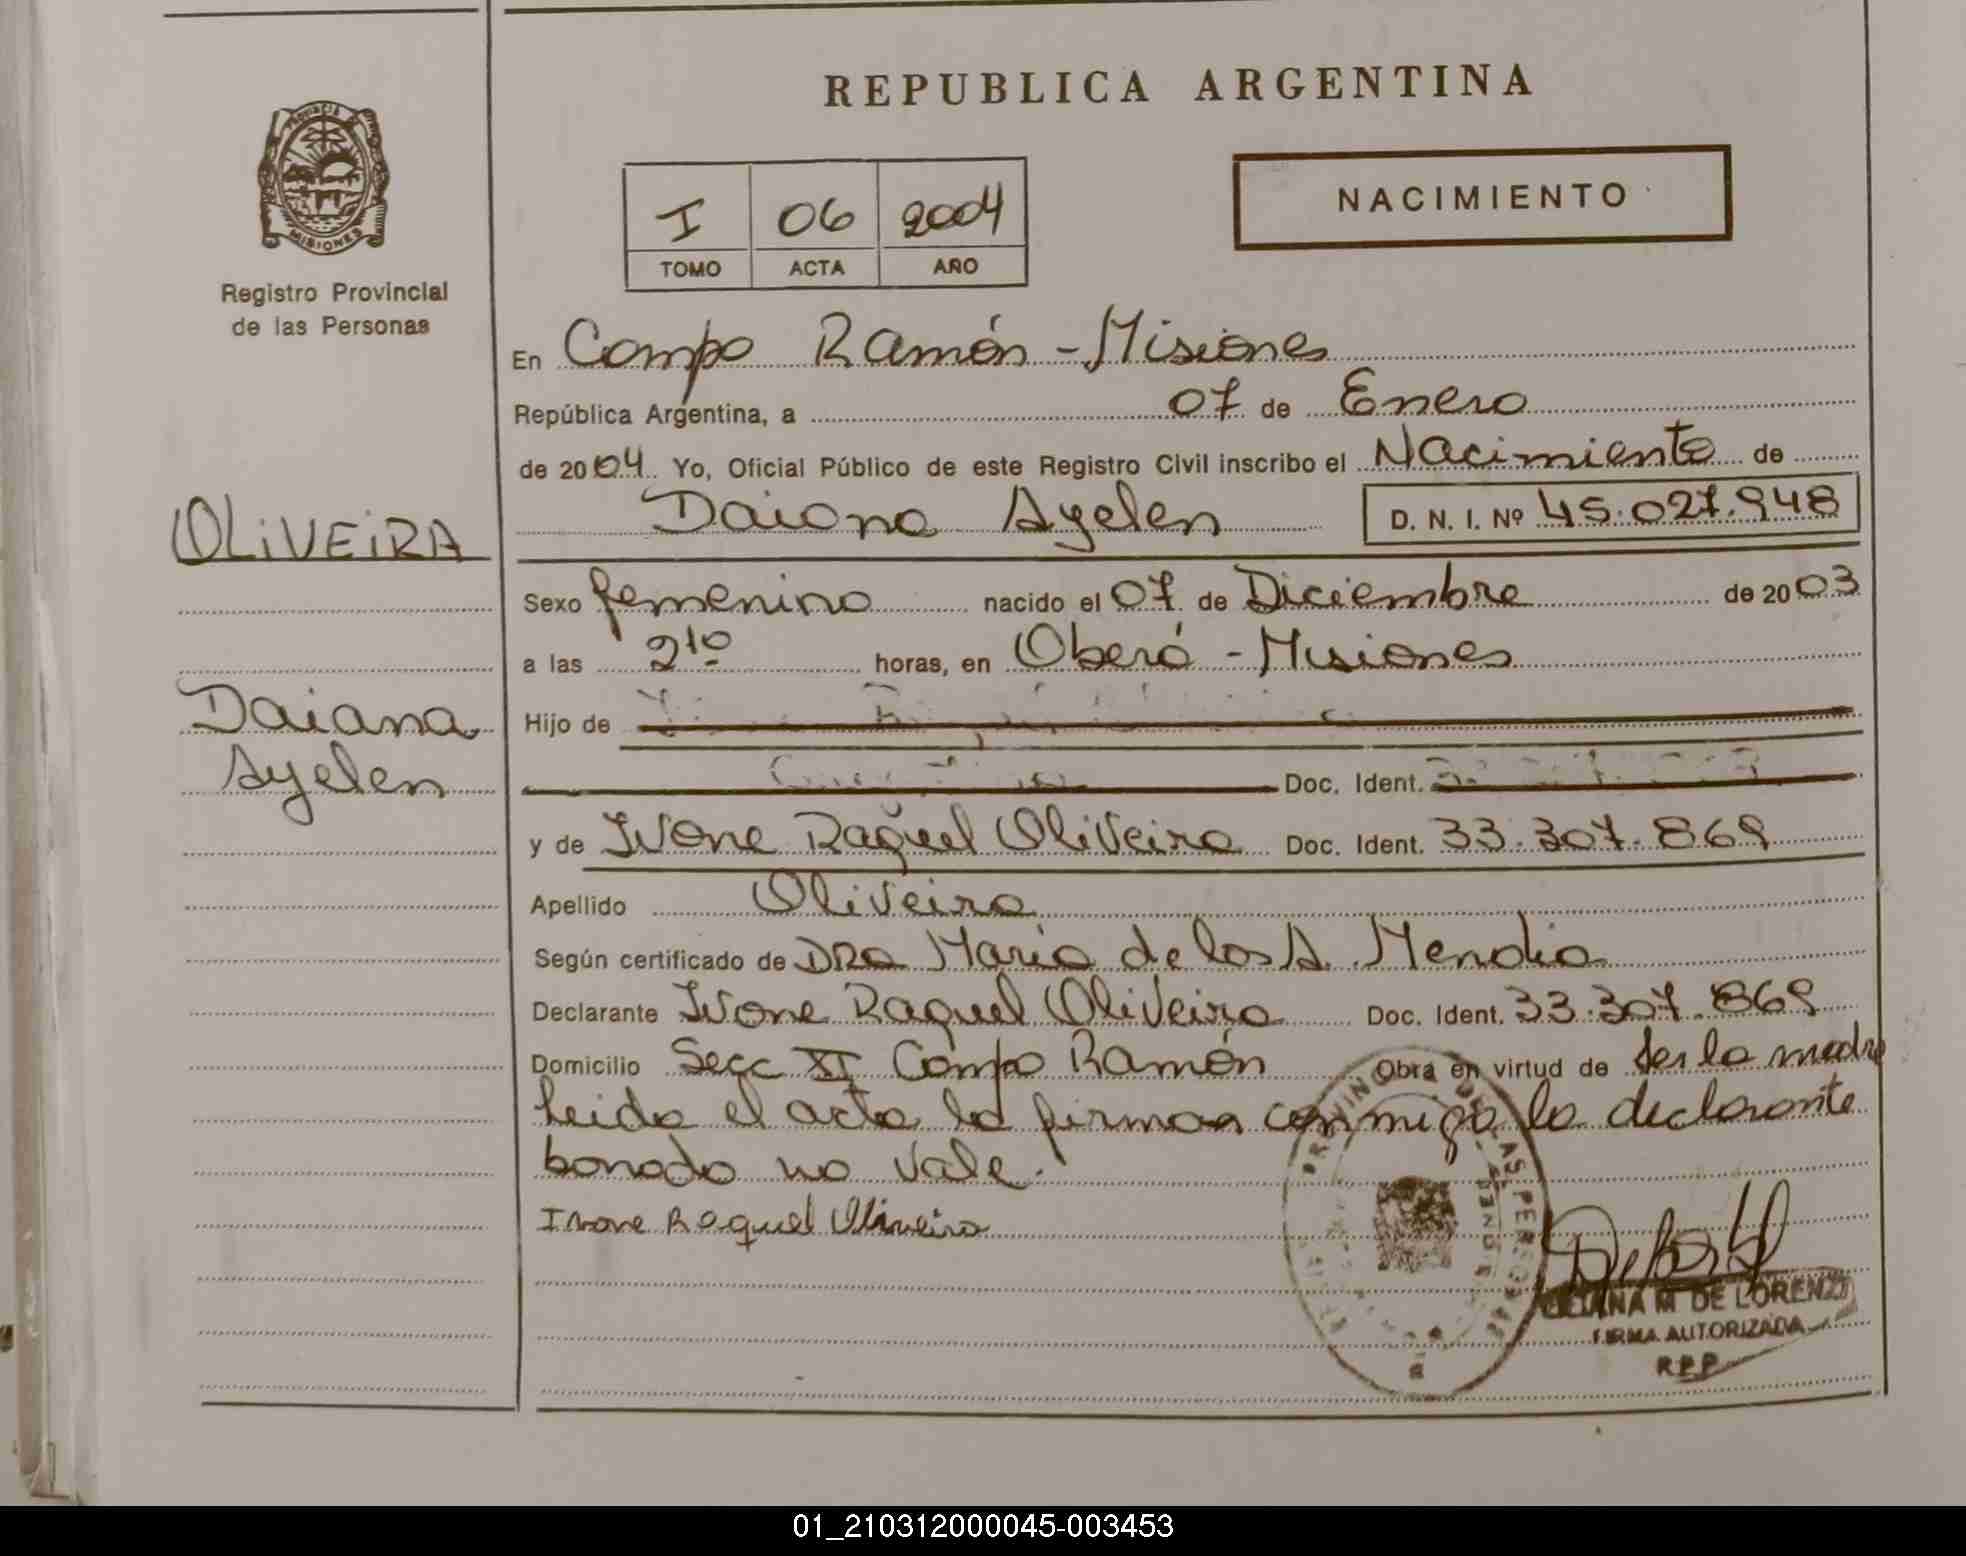 REPUBLICA ARGENTINA
PROVINCIA DE
MISIONES
Registro Provincial
de las Personas
I 06 2004
TOMO ACTA AÑO
NACIMIENTO
En Campo Ramón - Misiones
República Argentina, a 07 de Enero
de 2004 Yo, Oficial Público de este Registro Civil inscribo el Nacimiento de
Daiana Ayelen D. N. I. Nº 45.027.948
OLiVEiRA
Sexo femenino nacido el 07 de Diciembre de 2003
a las 21º horas, en Oberá - Misiones
Daiana
Ayelen
Hijo de
Doc. Ident.
y de Ivone Raquel Oliveira Doc. Ident. 33.307.869
Apellido Oliveira
Según certificado de DRa Maria de los A. Mendia
Declarante Ivone Raquel Oliveira Doc. Ident. 33.307.869
Domicilio Secc XI Campo Ramón Obra en virtud de ser la madre
leida el acta la firman conmigo la declarante
borrado no vale.
Ivone Raquel Oliveira
M DE LORENZI
FIRMA AUTORIZADA
R.P.P.
01_210312000045-003453